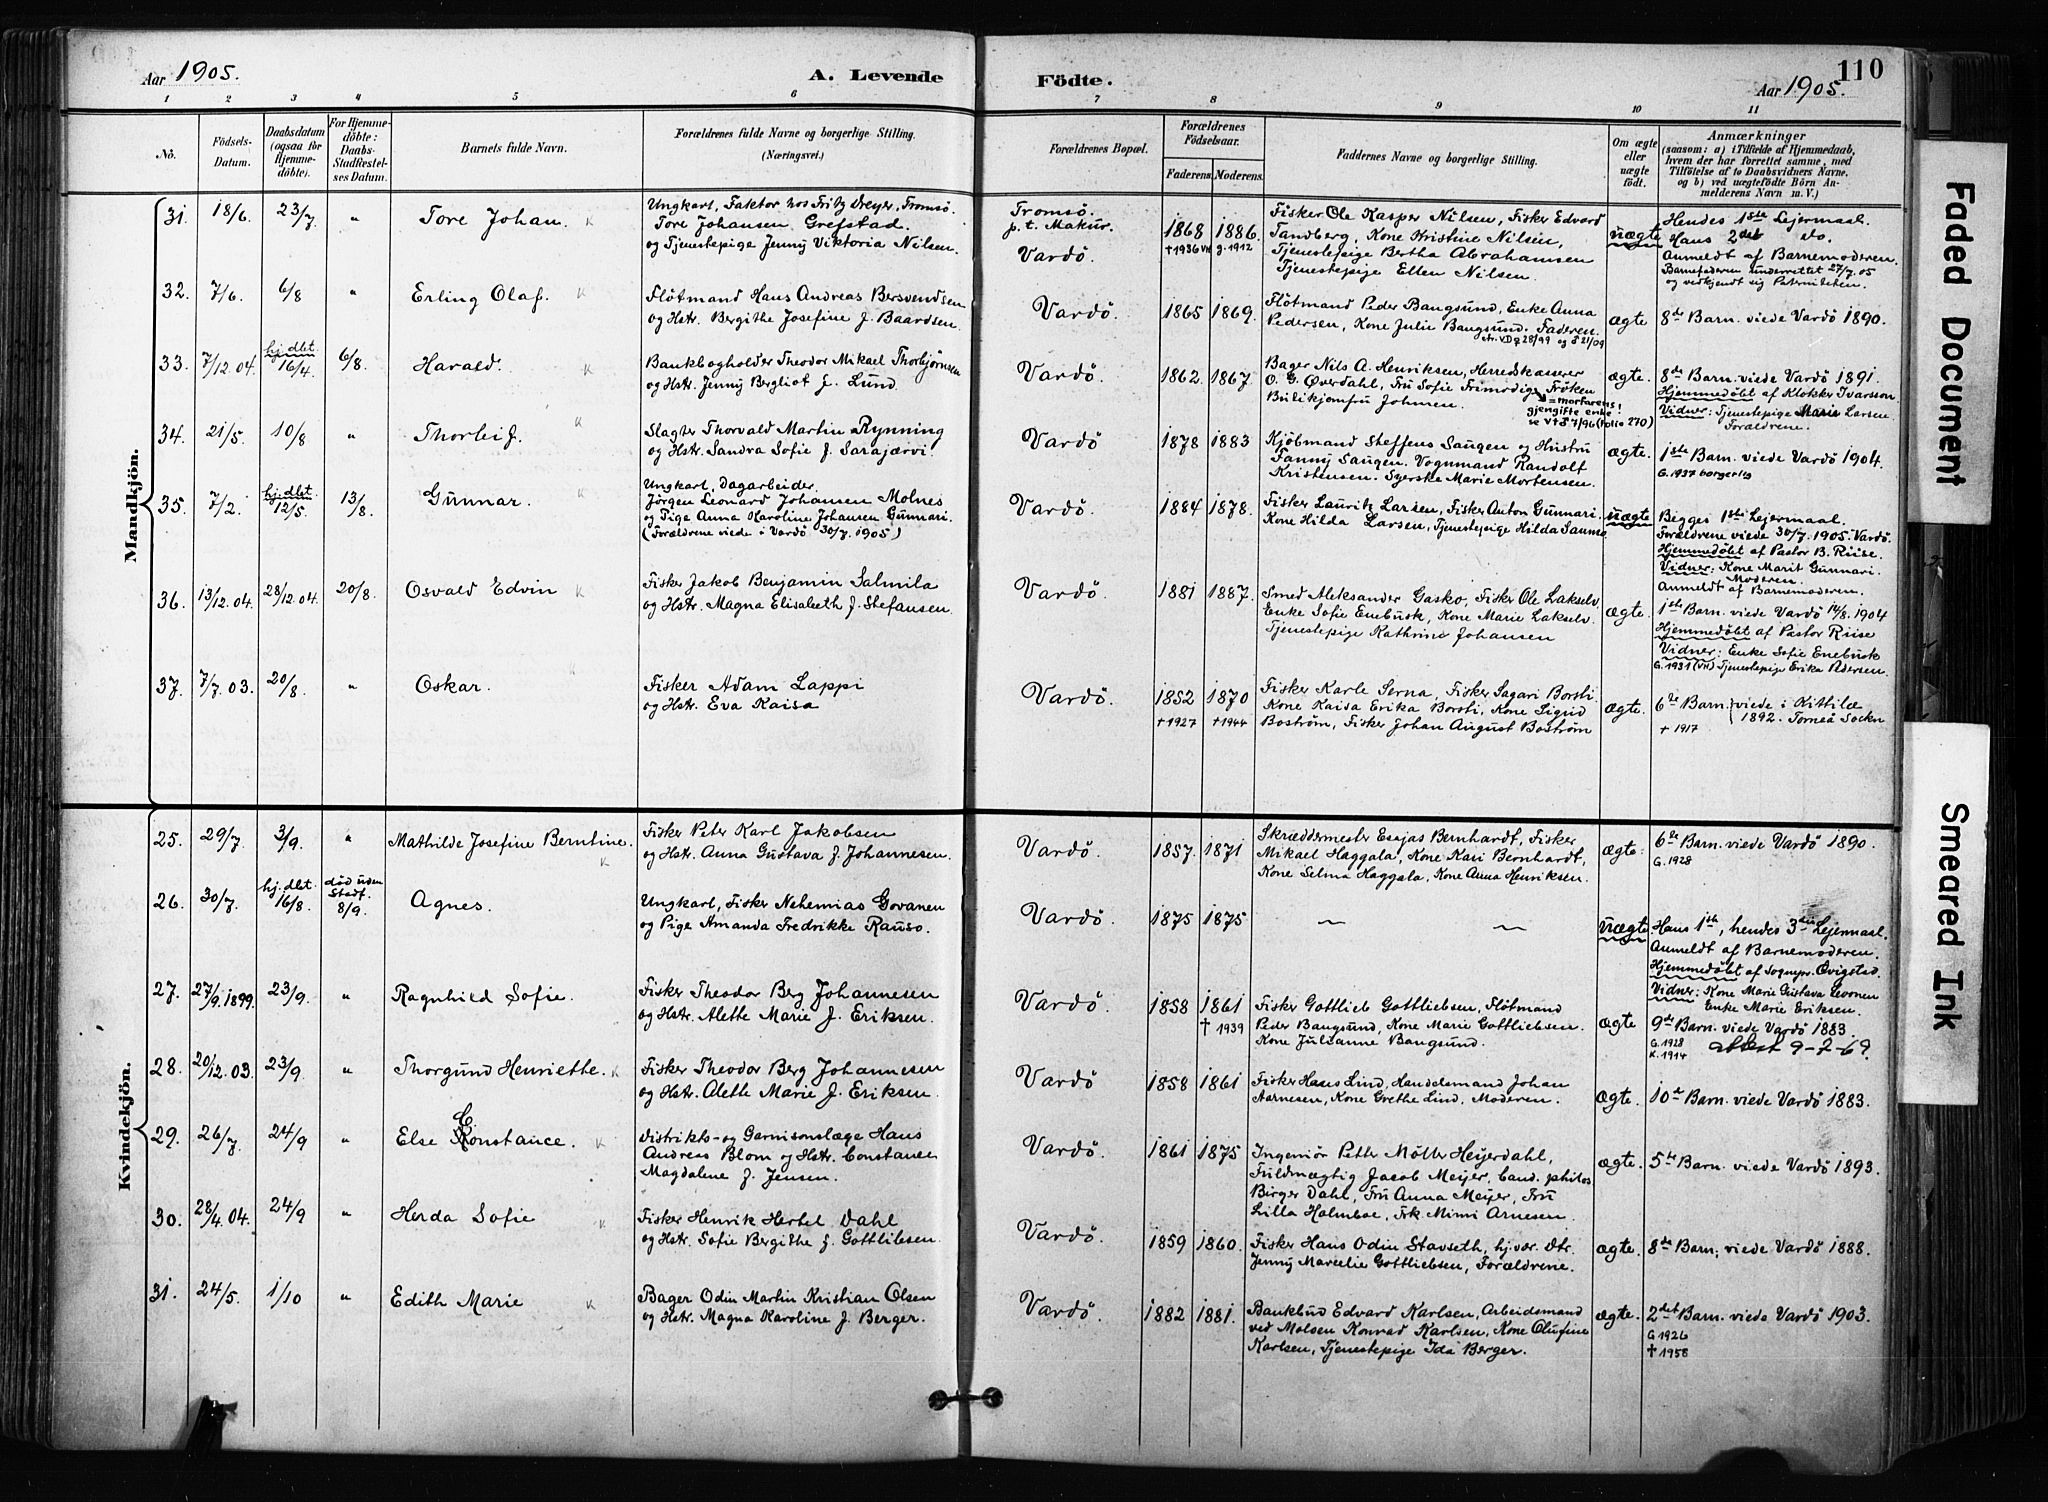 Aar 1905.
A. Levende
Födte.
Aar 1905.
110
1 2 3 4 5 6 7 8 9 10 11
Nö.
Födsels-
Datum.
Daabsdatum
(ogsaa for
Hjemme-
döbte).
For Hjemme-
döbte:
Daabs-
Stadfæstel-
ses Datum.
Barnets fulde Navn.
Forældrenes fulde Navne og borgerlige Stilling.
(Næringsvei.)
Forældrenes Bopæl.
Forældrenes
Födselsaar.
Faderens. Moderens.
Faddernes Navne og borgerlige Stilling.
Om ægte
eller
uægte
födt.
Anmærkninger
(saasom: a) i Tilfælde af Hjemmedaab,
hvem der har forrettet samme, med
Tilföielse af to Daabsvidners Navne,
og b) ved uægtefödte Börn An-
melderens Navn m. V.)
Mandkjön.
31. 18/6. 23/7. " Tore Johan.
Ungkarl, Faktor hos Fritz Dreyer, Tromsö.
Tore Johansen Grefstad.
og Tjenestepige Jenny Viktoria Nilsen.
Tromsö.
p. t. Makur.
Vardö.
1868 1886
†1936 VH g. 1912
Fisker Ole Kasper Nilsen, Fisker Edvard
Tandberg, Kone Kristine Nilsen,
Tjenestepige Bertha Abrahamsen
Tjenestepige Ellen Nilsen.
uægte
Hendes 1ste Lejermaal.
Hans 2det do.
Anmeldt af Barnemoderen.
Barnefaderen underrettet 27/7.05
og vedkjendt sig Paterniteten.
32. 7/6. 6/8 " Erling Olaf.
Flötmand Hans Andreas Bersvendsen
og Hstr. Bergithe Josefine f. Baardsen.
Vardö.
1865 1869.
Flötmand Peder Bangsund, Enke Anna
Pedersen, Kone Julie Bangsund. Faderen.
ægte
8de Barn. viede Vardö 1890.
33. 7/12.04. hj.dbt. 16/4. 6/8. Harald.
Bankbogholder Theodor Mikael Thorbjörnsen
og Hstr. Jenny Bergliot f. Lund.
Vardö.
1862 1867.
Bager Nils A. Henriksen, Herredskasserer
O. G. Øverdahl, Frü Sofie Frimodig, Fröken
=morfarens
gjengifte enke!
se V†8 7/96 (folio 270)
ægte.
8de Barn. viede Vardö 1891.
Hjemmedöbt af Klokker Ivarsson.
Vidner: Tjenestepige Marie Larsen.
Forældrene.
34. 21/5. 10/8 " Thorleif.
Slagter Thorvald Martin Rynning
og Hstr. Sandra Sofie f. Sarajærvi.
Vardö.
1878 1883
Kjöbmand Steffens Saugen og Hustru
Fanny Saugen. Vognmand Randolf
Kristensen. Syerske Marie Mortensen.
ægte.
1ste Barn. viede Vardö 1904.
G.1937 borgerlig
35. 7/2. hj.dbt. 12/5. 13/8. Gunnar.
Ungkarl, Dagarbeider,
Jörgen Leonard Johansen Molnes
og Pige Anna Karoline Johansen Gunnari.
(Forældrene viede i Vardö 30/7.1905)
Vardö.
1884 1878.
Fisker Lauritz Larsen, Fisker Anton Gunnari.
Kone Hilda Larsen, Tjenestepige Hilda Sauno.
uægte
Begges 1ste Lejermaal.
Forældrene viede 30/7. 1905. Vardö.
Hjemmedöbt af Pastor B. Riise.
Vidner: Kone Marit Gunnari.
Moderen.
Anmeldt af Barnemoderen.
36. 13/12.04. 28/12.04. 20/8. Osvald Edvin
Fisker Jakob Benjamin Salmila
og Hstr. Magna Elisabeth f. Stefansen.
Vardö.
1881 1887.
Smed Aleksander Gasko, Fisker Ole Lakselv.
Enke Sofie Enebusk, Kone Marie Lakselv.
Tjenestepige Kathrine Johansen
ægte.
1ste Barn. viede Vardö 14/8. 1904
Hjemmedöbt af Pastor Riise
Vidner: Enke Sofie Enebusk
G.1931 (VH) Tjenestepige Erika Pedersen.
37. 7/7.03. 20/8. " Oskar.
Fisker Adam Lappi
og Hstr. Eva Kaisa
Vardö.
1852 1870
†1927 †1944
Fisker Karle Serna, Fisker Sagari Borsti
Kone Kaisa Erika Borsti, Kone Sigrid
Boström, Fisker Johan August Boström
ægte.
6te Barn. viede i Kittilæ
1892. Torneå Sockn
† 1917
Kvindekjön.
25. 29/7. 3/9. " Mathilde Josefine Berntine.
Fisker Peter Karl Jakobsen
og Hstr. Anna Gustava f. Johannesen.
Vardö.
1857. 1871
Skræddermester Esajas Bernhardt, Fisker
Mikael Haggala, Kone Kari Bernhardt,
Kone Selma Haggala, Kone Anna Henriksen.
ægte.
6te Barn. viede Vardö 1890.
G.1928
26. 30/7. hj.dbt. 16/8. död uden Stadf. 8/9. Agnes.
Ungkarl, Fisker Nehemias Govanen
og Pige Amanda Fredrikke Rauso.
Vardö.
1875 1875
— —
uægte
Hans 1ste, hendes 3die Lejermaal.
Anmeldt af Barnemoderen.
Hjemmedöbt af Sognepr. Qvigstad.
Vidner: Kone Marie Gustava Levonen
Enke Marie Eriksen.
27. 27/9.1899. 23/9. " Ragnhild Sofie.
Fisker Theodor Berg Johannesen
og Hstr. Alette Marie f. Eriksen.
Vardö.
1858 1861
† 1939
Fisker Gottlieb Gottliebsen, Flötmand
Peder Bangsund, Kone Marie Gottliebsen.
Kone Julianne Bangsund.
ægte
9de Barn. viede Vardö 1883.
G.1928
K.1914 attest 9-7-69.
28. 20/12.03. 23/9. " Thorgund Henriette.
Fisker Theodor Berg Johannesen
og Hstr. Alette Marie f. Eriksen.
Vardö
1858 1861
Fisker Hans Lind, Handelsmand Johan
Aarnesen, Kone Grethe Lind, Moderen.
ægte.
10de Barn. viede Vardö 1883.
29. 26/7. 24/9 " Else Constance.
Distrikts- og Garnisonslæge Hans
Andreas Blom og Hstr. Constance
Magdalene f. Jensen.
Vardö.
1861 1875
Ingeniör Petter Möller Heyerdahl,
Fuldmægtig Jacob Meijer, cand. philos
Birger Dahl, Frü Anna Meijer, Frü
Lilla Holmboe, Frk. Mimi Arnesen.
ægte.
5te Barn. viede Vardö 1893.
30. 28/4.04. 24/9 " Herda Sofie
Fisker Henrik Hertel Dahl
og Hstr. Sofie Bergithe f. Gottliebsen.
Vardö.
1859 1860.
Fisker Hans Odin Stavseth, hj.vær. Dtr.
Jenny Marcelie Gottliebsen, Forældrene.
ægte.
8de Barn, viede Vardö 1888.
31. 24/5. 1/10 " Edith Marie
Bager Odin Martin Kristian Olsen
og Hstr. Magna Karoline f. Berger.
Vardö.
1882 1881.
Bankbud Edvard Karlsen, Arbeidsmand
ved Moloen Konrad Karlsen, Kone Olufine
Karlsen, Tjenestepige Ida Berger.
ægte.
2det Barn. viede Vardö 1903.
G 1926
† 1958
Faded Document
Smeared Ink